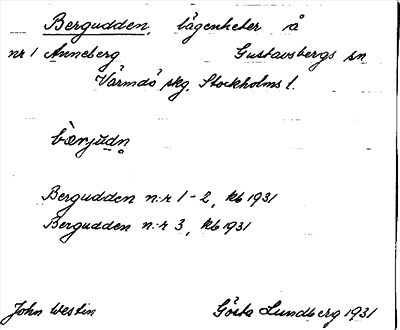 Bergudden, lägenheter å
nr 1 Anneberg Gustavsbergs sn
Värmdö skg. Stockholms l.
bærjùdn̥
Bergudden n:r 1-2, kb 1931
Bergudden n:r 3, kb 1931
John Westin Gösta Lundberg 1931